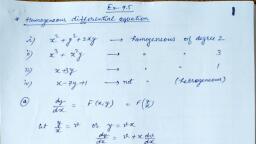 Ex-9.5
* Homogeneous differential equation
i) x² + y² + 2xy → homogeneous of degree 2
ii) x³ + x²y → " 3
iii) x + 3y → " 1
iv) x - 7y + 1 → not (heterogeneous)
(a) dy/dx = F(x, y) = F(y/x)
let y/x = v or y = vx
dy/dx = v + x dv/dx